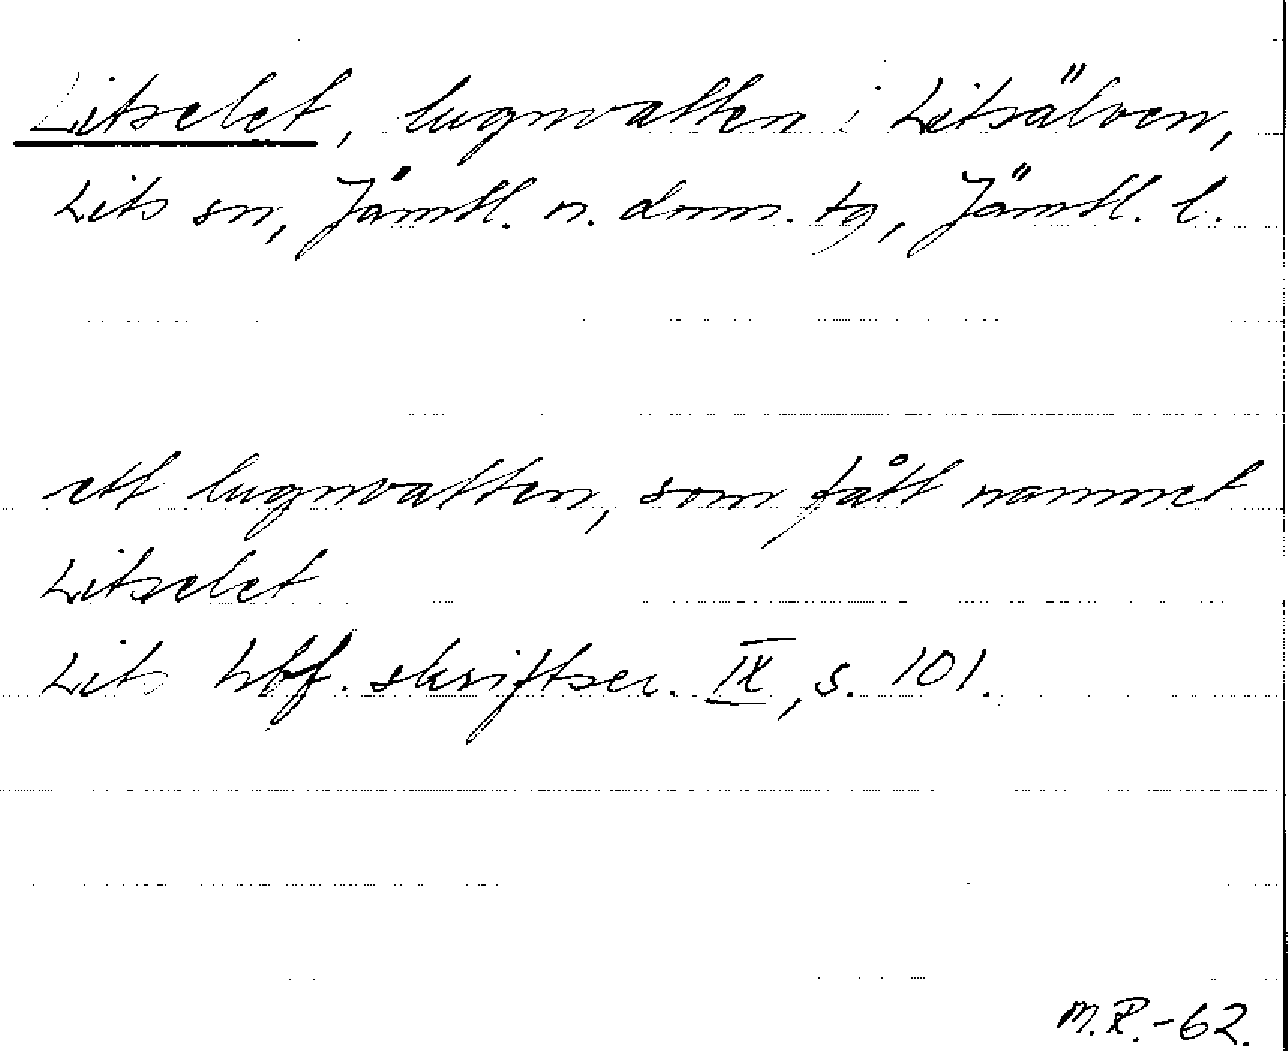 Litselet, lugnvatten i Litsälven,
Lits sn, Jämtl. n. dom. tg, Jämtl. l.
ett lugnvatten, som fått namnet
Litselet
Lits hbf. skriftser. IX, s. 101.
M.R.-62.